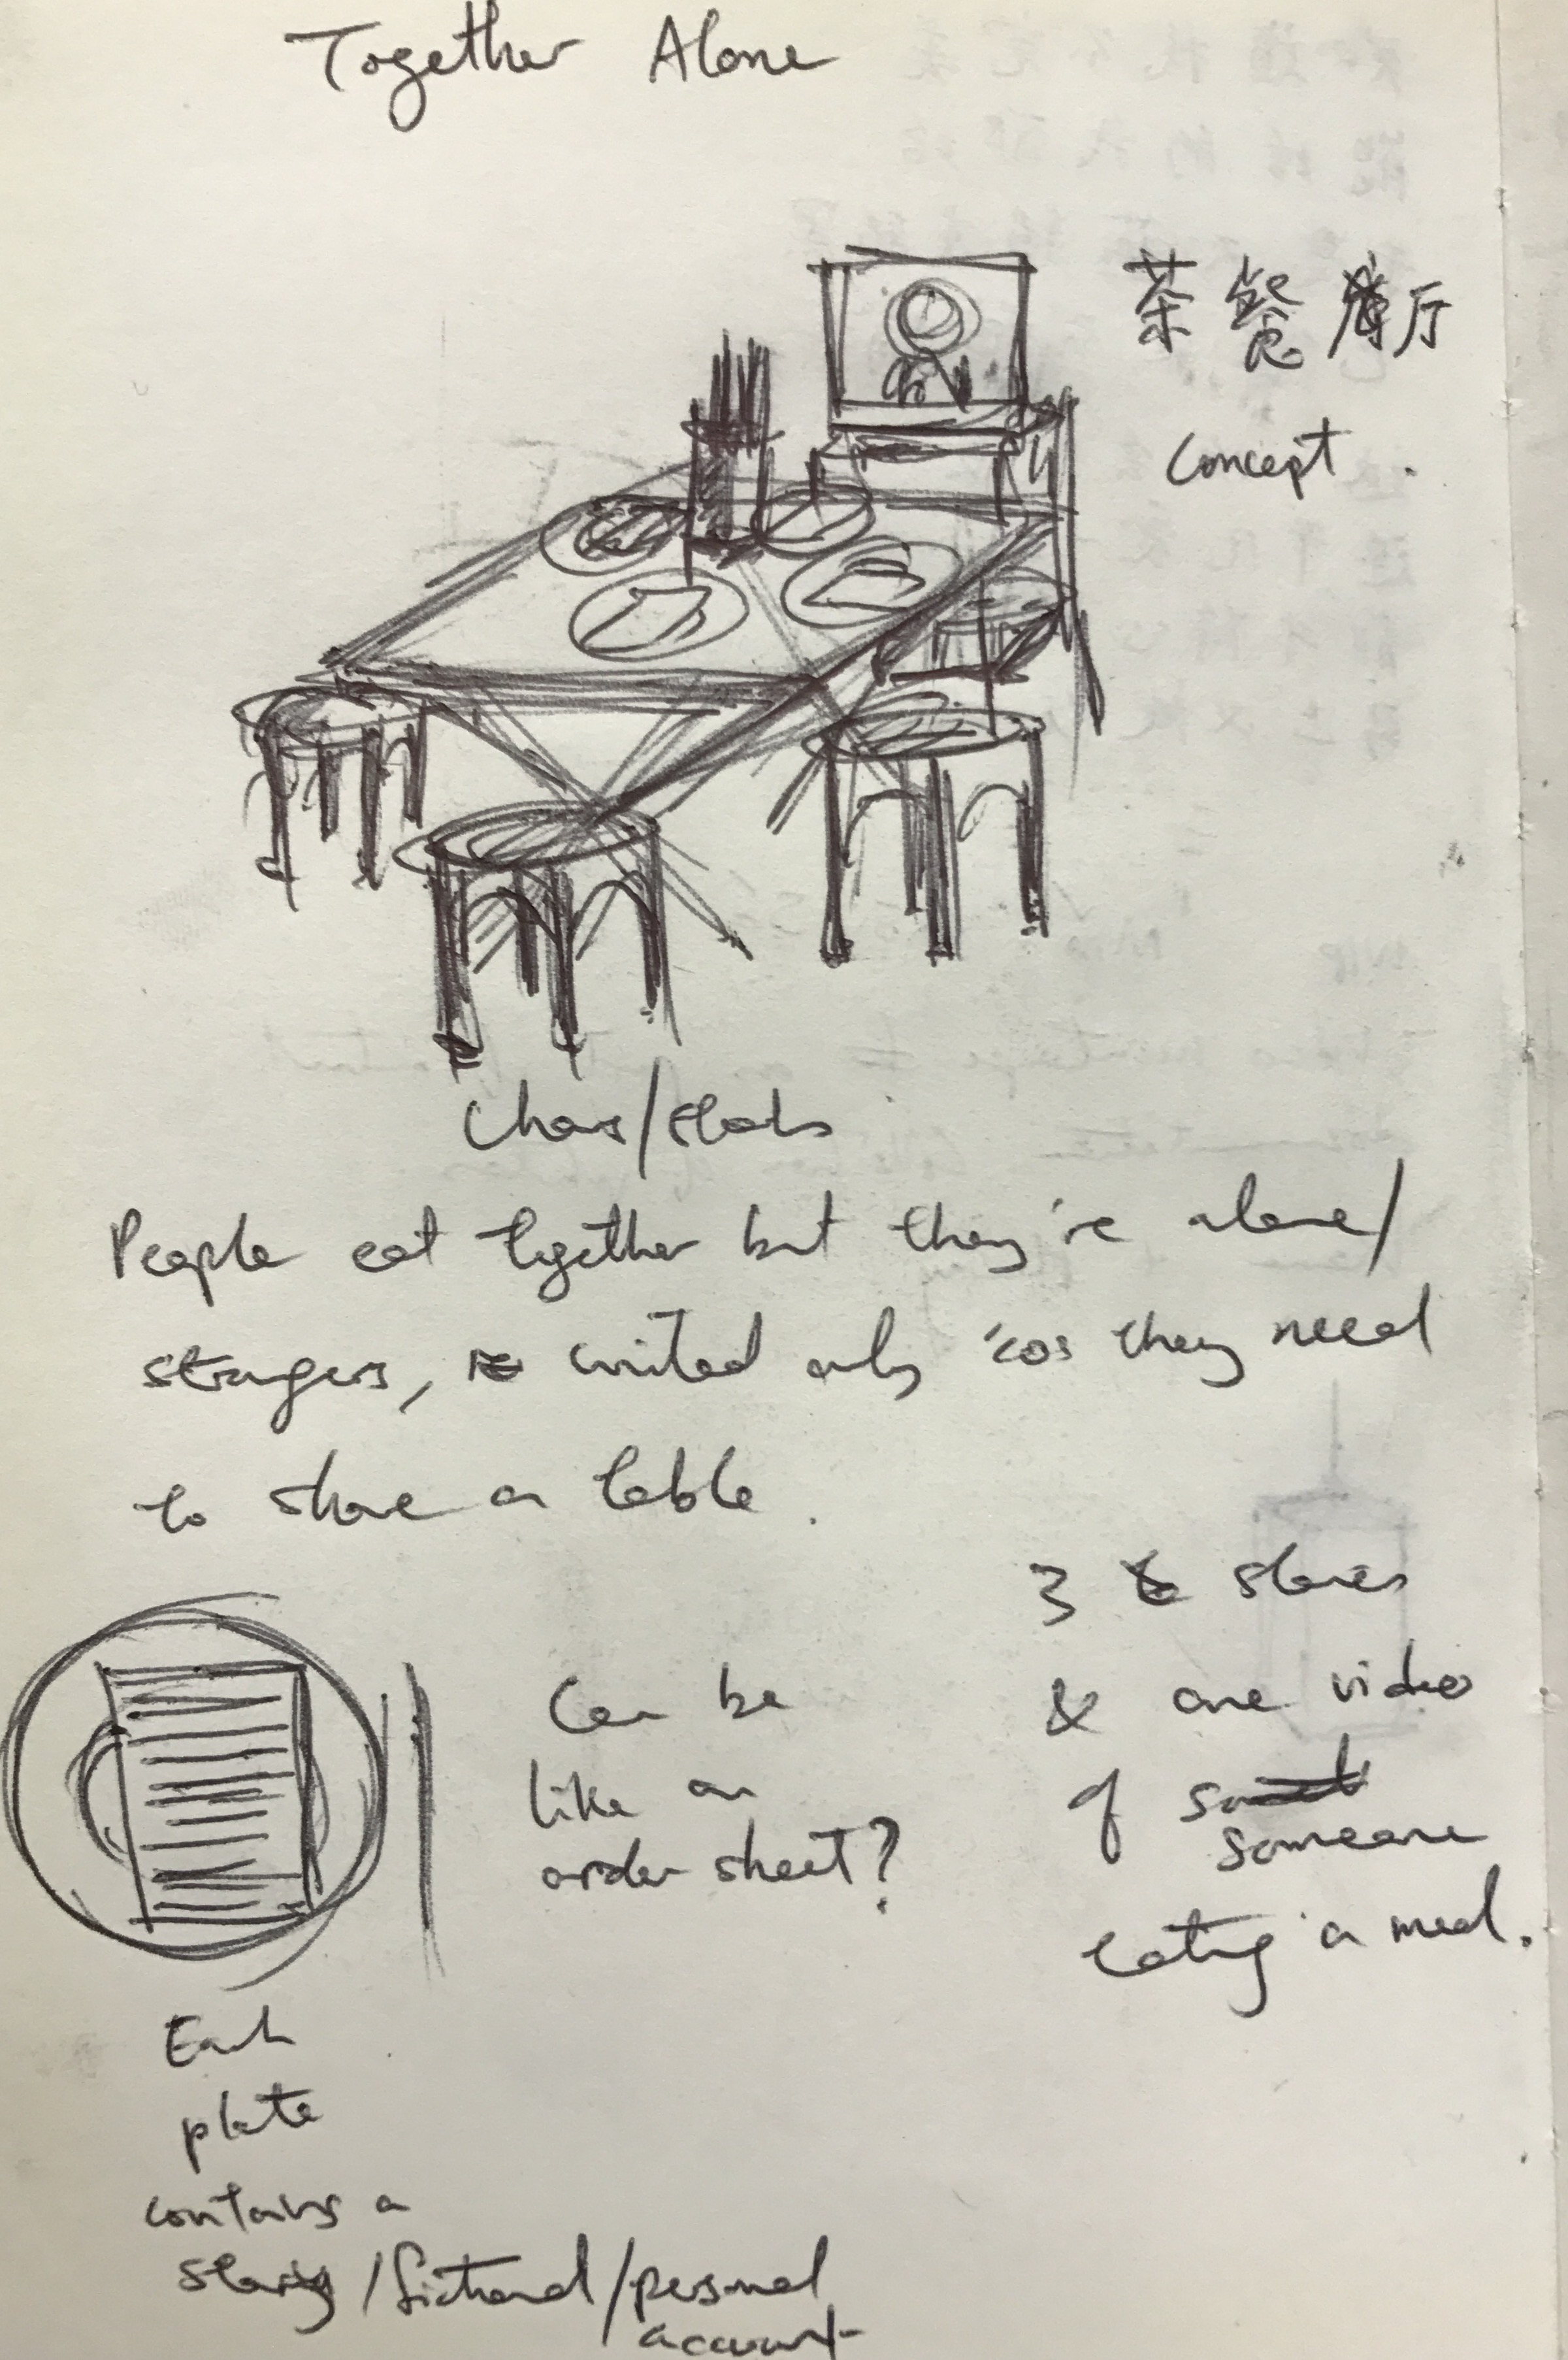 Together Alone
茶餐厅
Concept.
Chairs/stools
People eat together but they're alone/
strangers, united only 'cos they need
to share a table.
3 stories
& one video
of
someone
eating a meal.
Can be
like an
order sheet?
Each
plate
contains a
story/fictional/personal
account